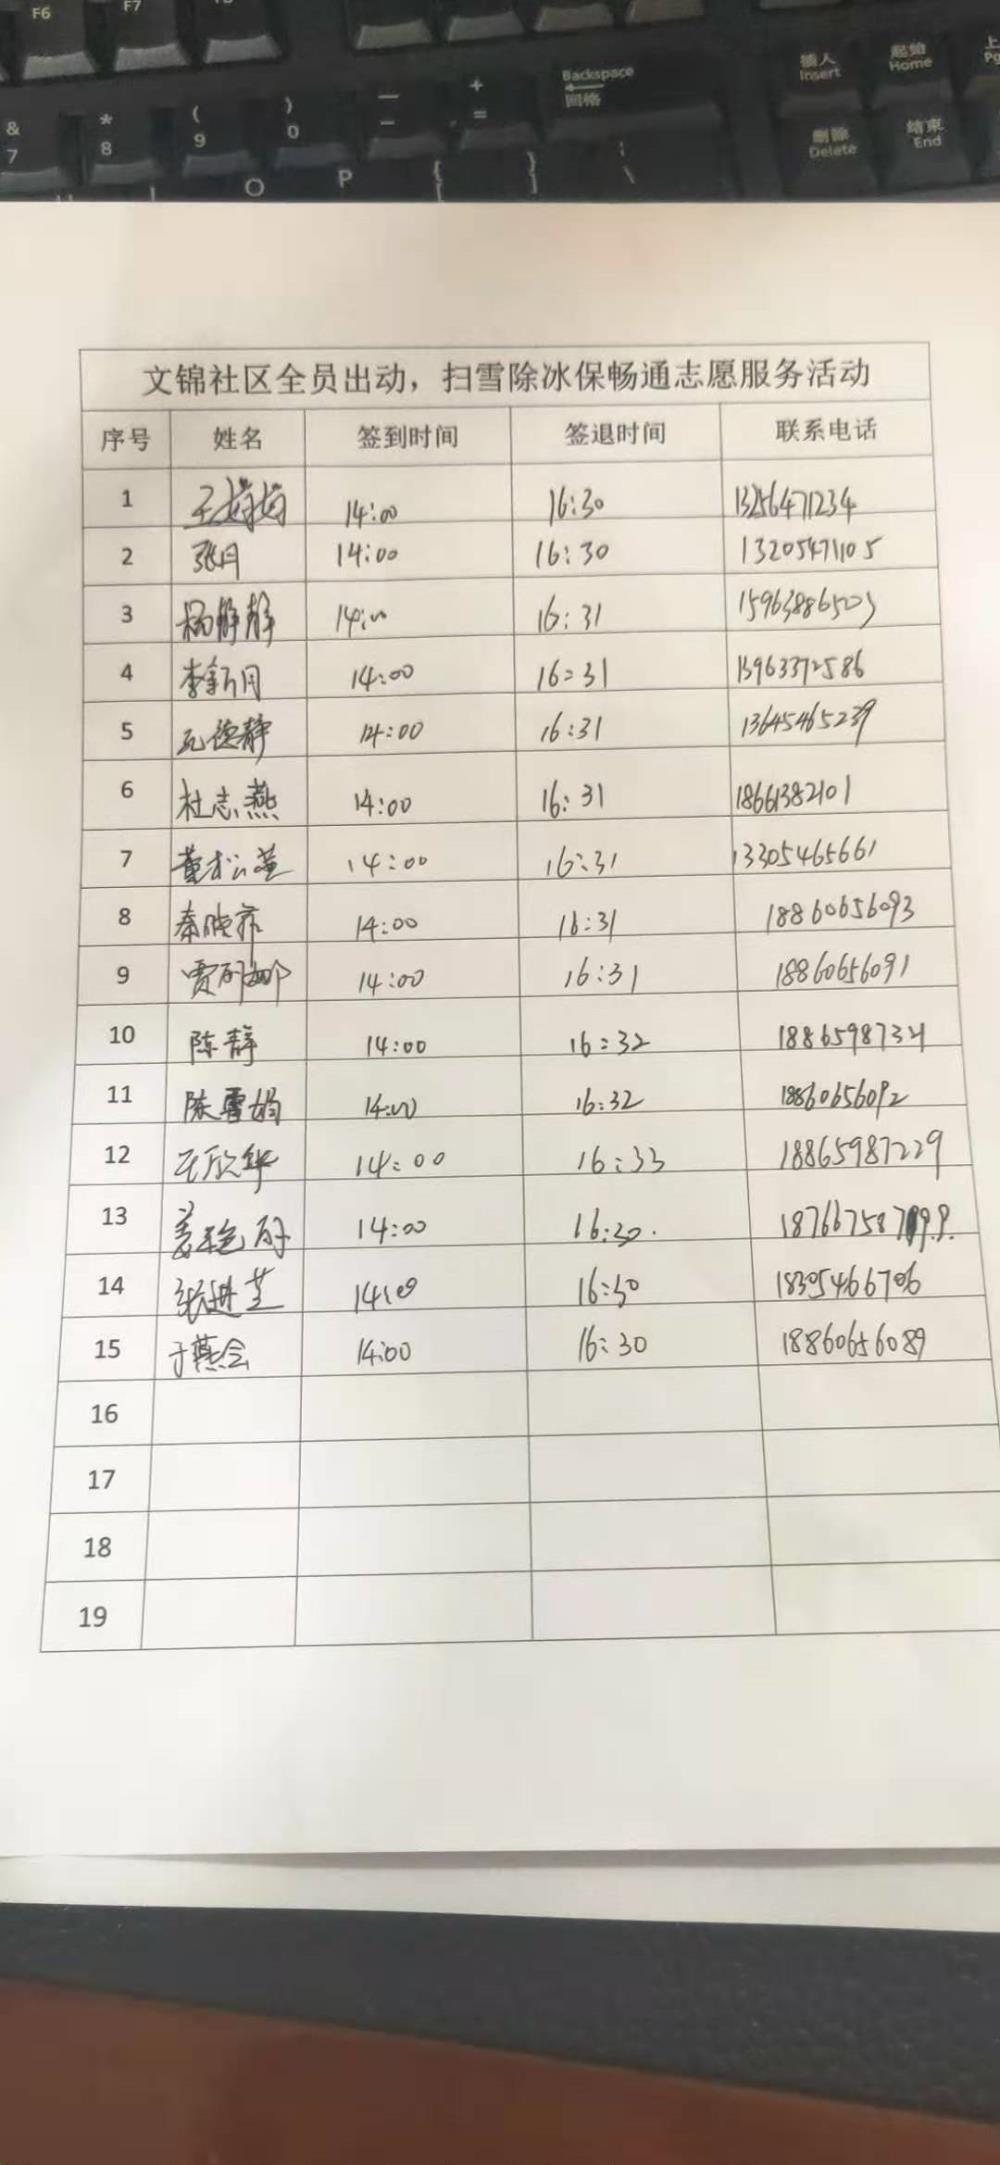 F6 F7
& 7 * 8 ( 9 ) 0 — - + = Backspace 回格 插入 Insert 起始 Home
删除 Delete 结束 End
O P { [ } ] \
文锦社区全员出动，扫雪除冰保畅通志愿服务活动
序号 姓名 签到时间 签退时间 联系电话
1 14:00 16:30 13256471234
2 张月 14:00 16:30 13205471105
3 杨静静 14:00 16:31 15963886503
4 李新月 14:00 16:31 15963372586
5 14:00 16:31 13645465239
6 杜志燕 14:00 16:31 18661382101
7 14:00 16:31 13305465661
8 秦晓菲 14:00 16:31 18860656093
9 14:00 16:31 18860656091
10 陈静 14:00 16:32
11 陈雪娟 14:00 16:32 18860656092
12 王欣华 14:00 16:33 18865987229
13 14:00 16:30.
14 张进芝 14:00 16:30 18305466706
15 于燕会 14:00 16:30 18860656089
16
17
18
19